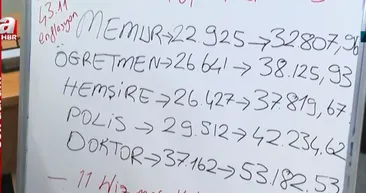 a
HBR
43.11
enflasyon
MEMUR→22.925→32807,96
ÖĞRETMEN→26641→38.125,93
HEMŞİRE→26.427→37819,67
POLİS→29.512→42.234.62
DOKTOR→37.162→53.182.53
— 11